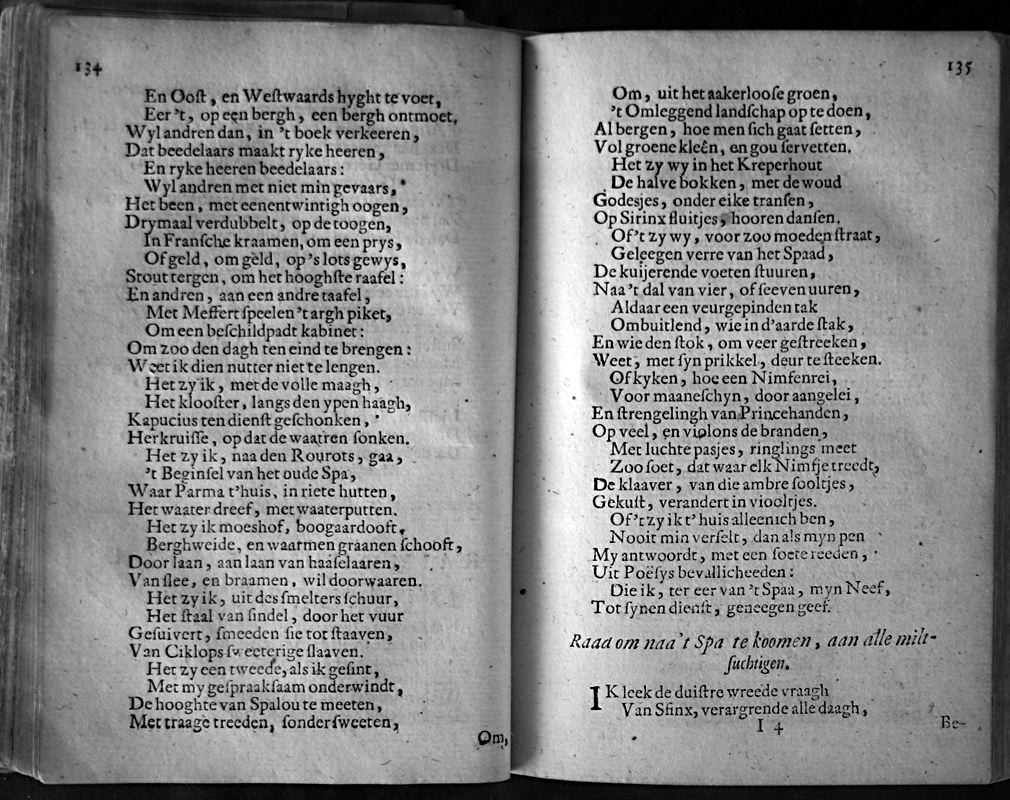 134
En Ooſt, en Weſtwaards hyght te voet,
Eer 't, op een bergh, een bergh ontmoet,
Wyl andren dan, in 't boek verkeeren,
Dat beedelaars maakt ryke heeren,
En ryke heeren beedelaars:
Wyl andren met niet min gevaars,
Het been, met eenentwintigh oogen,
Drymaal verdubbelt, op de toogen,
In Franſche kraamen, om een prys,
Of geld, om geld, op 's lots gewys,
Stout tergen, om het hooghſte raafel:
En andren, aan een andre taafel,
Met Meffert ſpeelen 't argh piket,
Om een beſchildpadt kabinet:
Om zoo den dagh ten eind te brengen:
Weet ik dien nutter niet te lengen.
Het zy ik, met de volle maagh,
Het klooſter, langs den ypen haagh,
Kapucius ten dienſt geſchonken,
Herkruiſſe, op dat de waatren ſonken.
Het zy ik, naa den Rourots, gaa,
't Beginſel van het oude Spa,
Waar Parma t'huis, in riete hutten,
Het waater dreef, met waaterputten.
Het zy ik moeshof, boogaardooft,
Berghweide, en waarmen graanen ſchooft,
Door laan, aan laan van haaſelaaren,
Van ſlee, en braamen, wil doorwaaren.
Het zy ik, uit des ſmelters ſchuur,
Het ſtaal van ſindel, door het vuur
Geſuivert, ſmeeden ſie tot ſtaaven,
Van Ciklops ſweeterige ſlaaven.
Het zy een tweede, als ik geſint,
Met my geſpraakſaam onderwindt,
De hooghte van Spalou te meeten,
Met traage treeden, ſonder ſweeten,
Om,
135
Om, uit het aakerlooſe groen,
't Omleggend landſchap op te doen,
Al bergen, hoe men ſich gaat ſetten,
Vol groene kleên, en gou ſervetten.
Het zy wy in het Kreperhout
De halve bokken, met de woud
Godesjes, onder eike tranſen,
Op Sirinx fluitjes, hooren danſen.
Of 't zy wy, voor zoo moeden ſtraat,
Geleegen verre van het Spaad,
De kuijerende voeten ſtuuren,
Naa 't dal van vier, of ſeeven uuren,
Aldaar een veurgepinden tak
Ombuitlend, wie in d'aarde ſtak,
En wie den ſtok, om veer geſtreeken,
Weet, met ſyn prikkel, deur te ſteeken.
Of kyken, hoe een Nimfenrei,
Voor maaneſchyn, door aangelei,
En ſtrengelingh van Princehanden,
Op veel, en violons de branden,
Met luchte pasjes, ringlings meet
Zoo ſoet, dat waar elk Nimfje treedt,
De klaaver, van die ambre ſooltjes,
Gekuſt, verandert in viooltjes.
Of 't zy ik t' huis alleenich ben,
Nooit min verſelt, dan als myn pen
My antwoordt, met een ſoete reeden,
Uit Poëſys bevallicheeden:
Die ik, ter eer van 't Spaa, myn Neef,
Tot ſynen dienſt, geneegen geef.
Raad om naa 't Spa te koomen, aan alle milt-
ſuchtigen.
IK leek de duiſtre wreede vraagh
Van Sfinx, verargrende alle daagh,
I 4
Be-